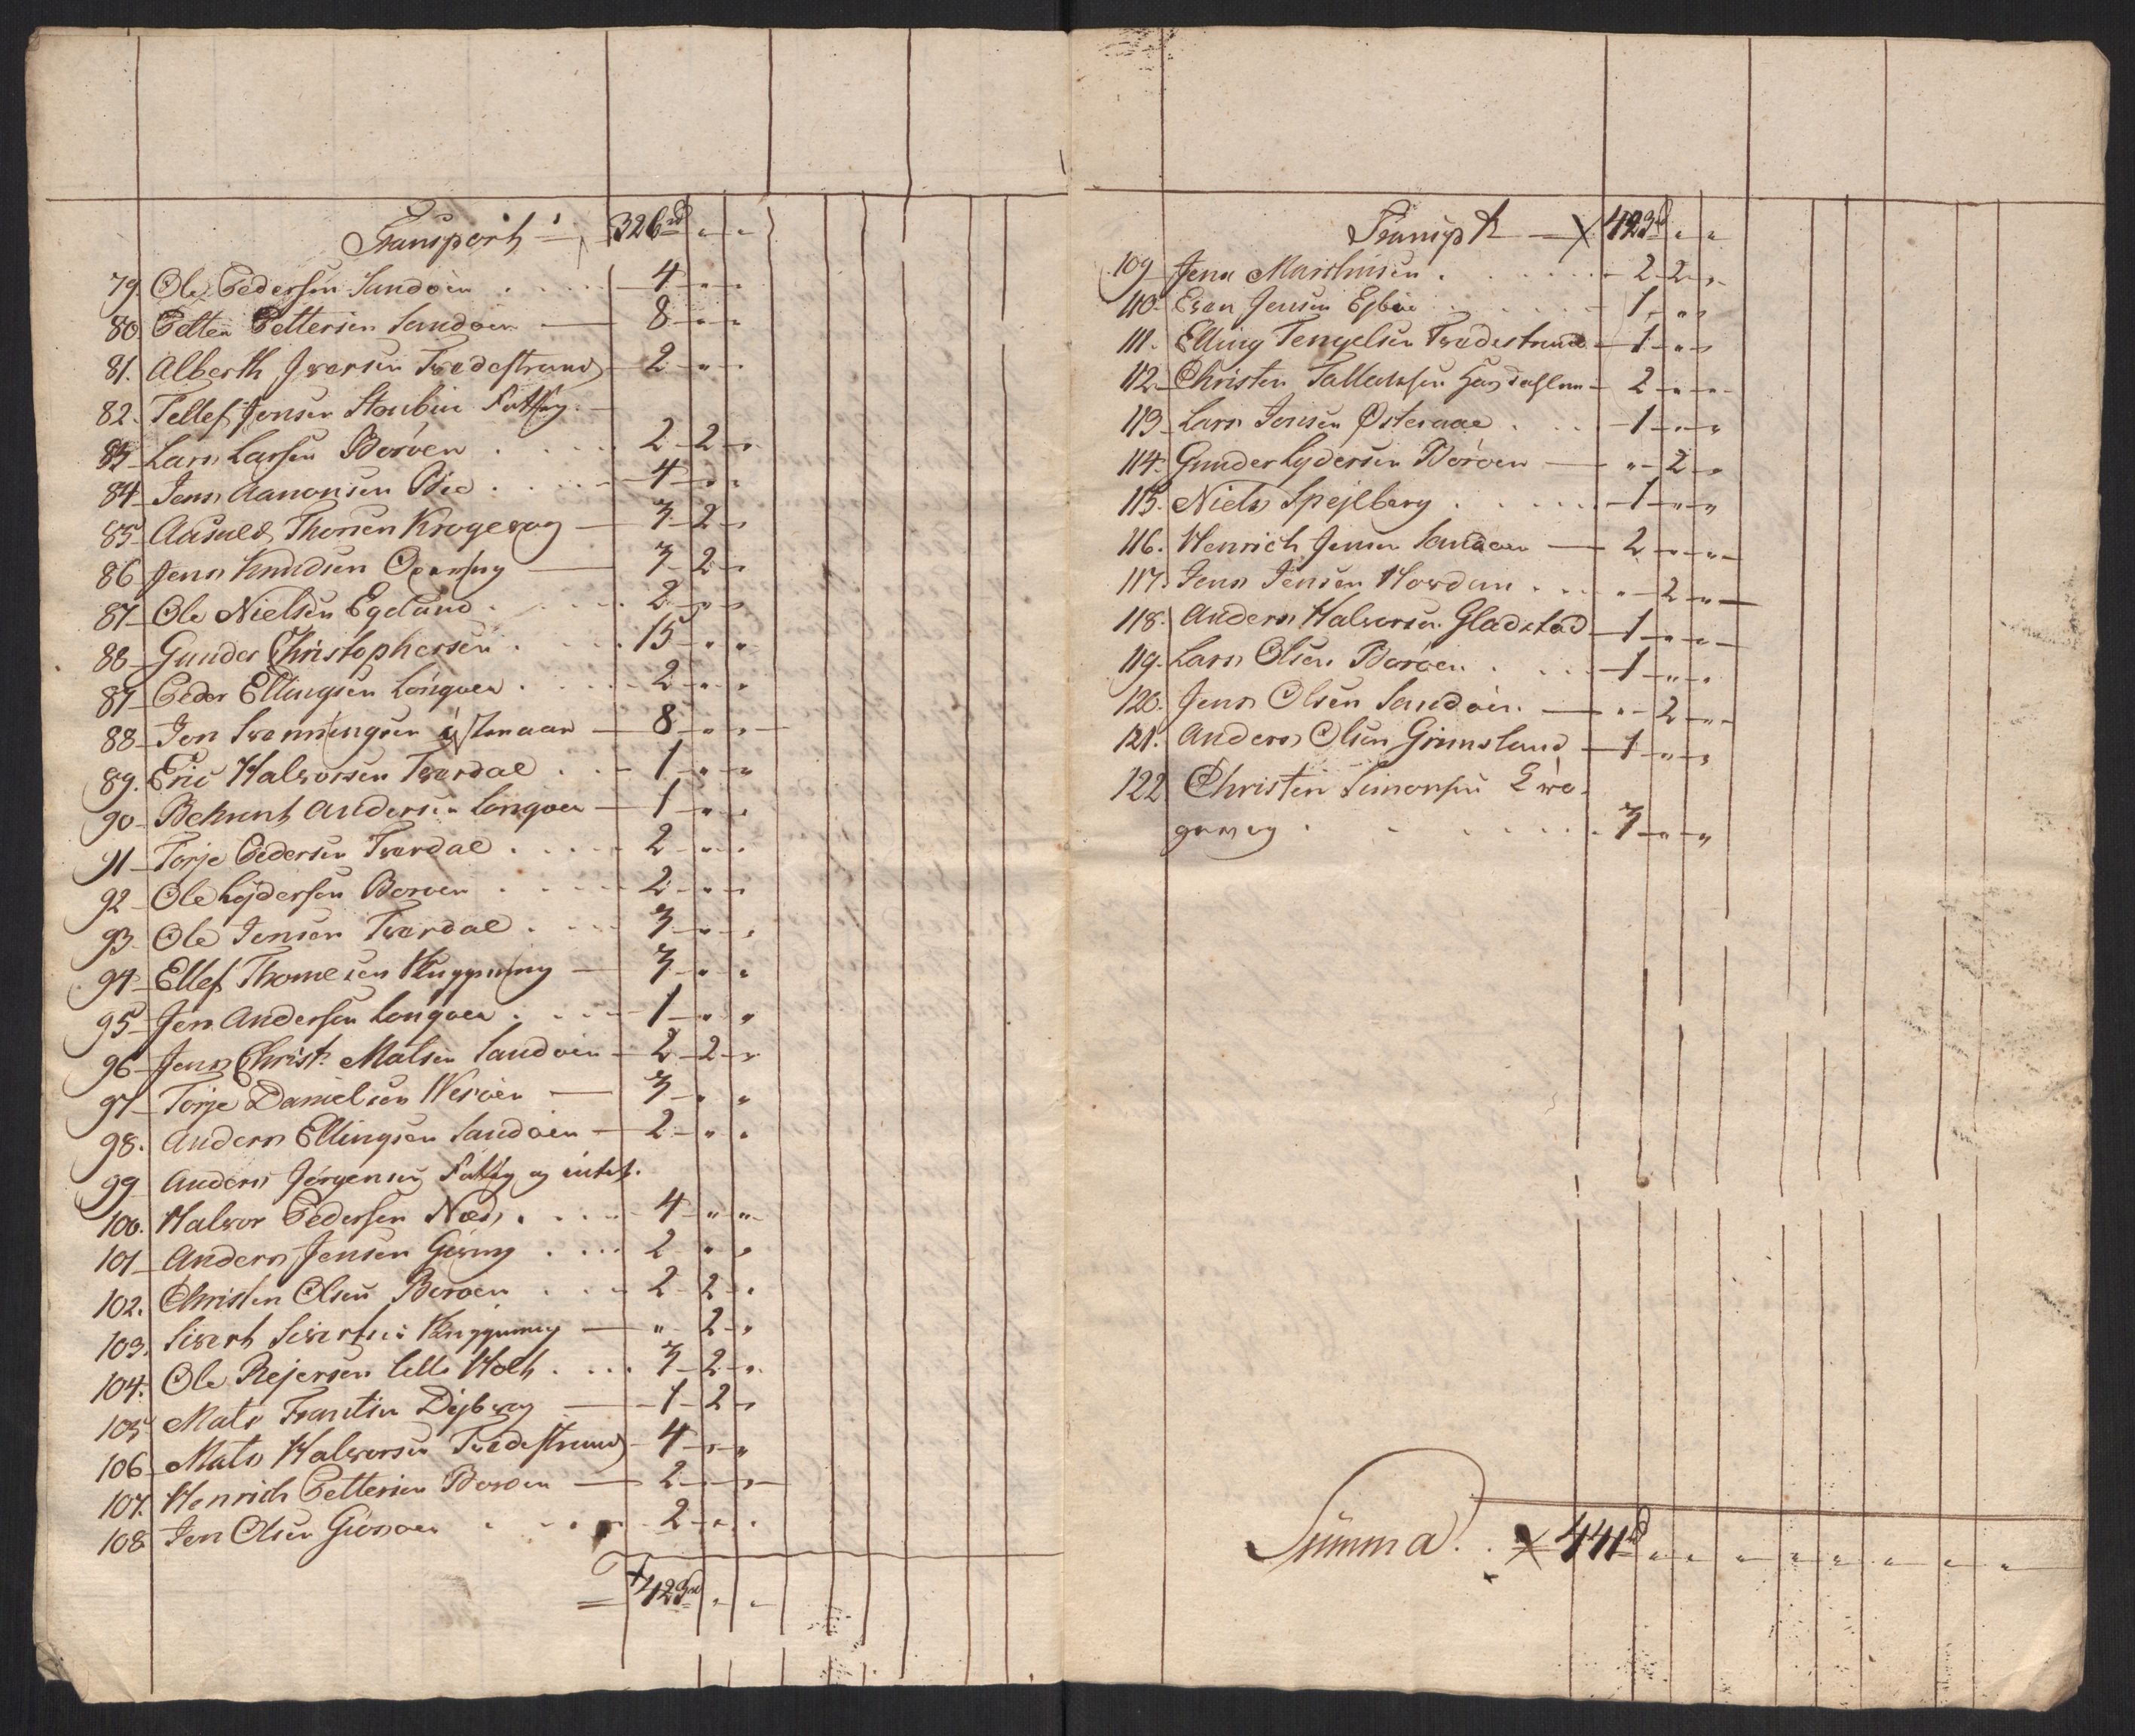 Transport = 326 rd " "
79. Ole Pedersen Sandøen . . . . 4 " "
80. Petter Pettersen Sandøen — 8 " "
81. Alberth Iversen Tvedestrand 2 " "
82. Tellef Jensen Stoubøe Fattig. —
83 Lars Larsen Borøen . . . . 2 2 "
84 Jens Aanonsen Bie . . . . 4 " "
85 Aasuld Thorsen Krogevog — 3 2 "
86 Jens Knudsen — 3 2 "
87 Ole Nielsen Egeland . . . . 2 " "
88 Gunder Christophersen . . . . 15 " "
87 Peder Ellingsen Longøen . . . . 2 " "
88 Jon Svenningsen — 8 " "
89. Eric Halvorsen Tverdal . . . 1 " "
90 Behrent Andersen Longøen — 1 " "
91 Torje Pedersen Tverdal . . . . 2 " "
92 Ole Lydersen Borøen . . . . 2 " "
93 Ole Jensen Tverdal . . . . 3 " "
94 Ellef Thomesen — 3 " "
95 Jens Andersen Longøen . . . . 1 " "
96 Jens Christ. Matsen Sandøen — 2 2 "
97 Torje Danielsen Wesøen — 3 " "
98. Anders Ellingsen Sandøen — 2 " "
99 Anders Jørgensen Fattig og intet.
100. Halvor Pedersen Næs . . . . 4 " "
101 Anders Jensen . . . . 2 " "
102. Christen Olsen Borøen . . . 2 2 "
103. Sivert Sivertsen — " 2 "
104. Ole Rejersen lille Holt . . . . 3 2 "
105 Mats Frantsen Dybvog — 1 2 "
106 Mats Halvorsen Tvedestrand 4 " "
107. Henrich Pettersen Borøen — 2 " "
108 Jen Olsen . . . . 2 " "
= 423 rd " "
Transpt — 423 rd " "
109 Jens Marthinsen . . . . 2 2 "
110. Even Jensen . . . . 1 " "
111. Elling Tengelsen Tvedestrand 1 " "
112 Christen Tallaksen — 2 " "
113 Lars Jensen Østeraae . . . 1 " "
114. Gunder Lydersen Borøen — " 2 "
115. Niels Spejlberg . . . . 1 " "
116. Henrich Jensen Sandøen — 2 " "
117. Jens Jensen . . . " 2 "
118. Anders Halvorsen Gladstad 1 " "
119. Lars Olsen Borøen . . . . 1 " "
120. Jens Olsen Sandøen. — " 2 "
121. Anders Olsen Grimsland — 1 " "
122. Christen Simonsen
. . . . 3 " "
Summa . . 441 rd " " " " " " " "